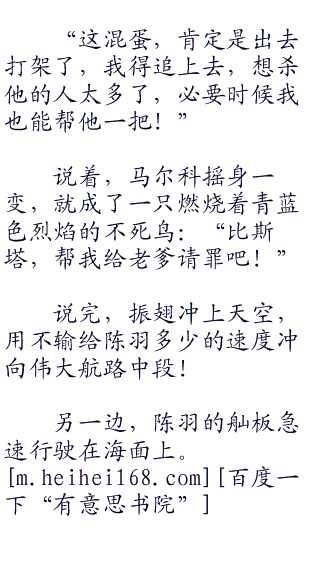 “这混蛋，肯定是出去
打架了，我得追上去，想杀
他的人太多了，必要时候我
也能帮他一把！”
说着，马尔科摇身一
变，就成了一只燃烧着青蓝
色烈焰的不死鸟：“比斯
塔，帮我给老爹请罪吧！”
说完，振翅冲上天空，
用不输给陈羽多少的速度冲
向伟大航路中段！
另一边，陈羽的舢板急
速行驶在海面上。
[m.heihei168.com][百度一
下“有意思书院”]